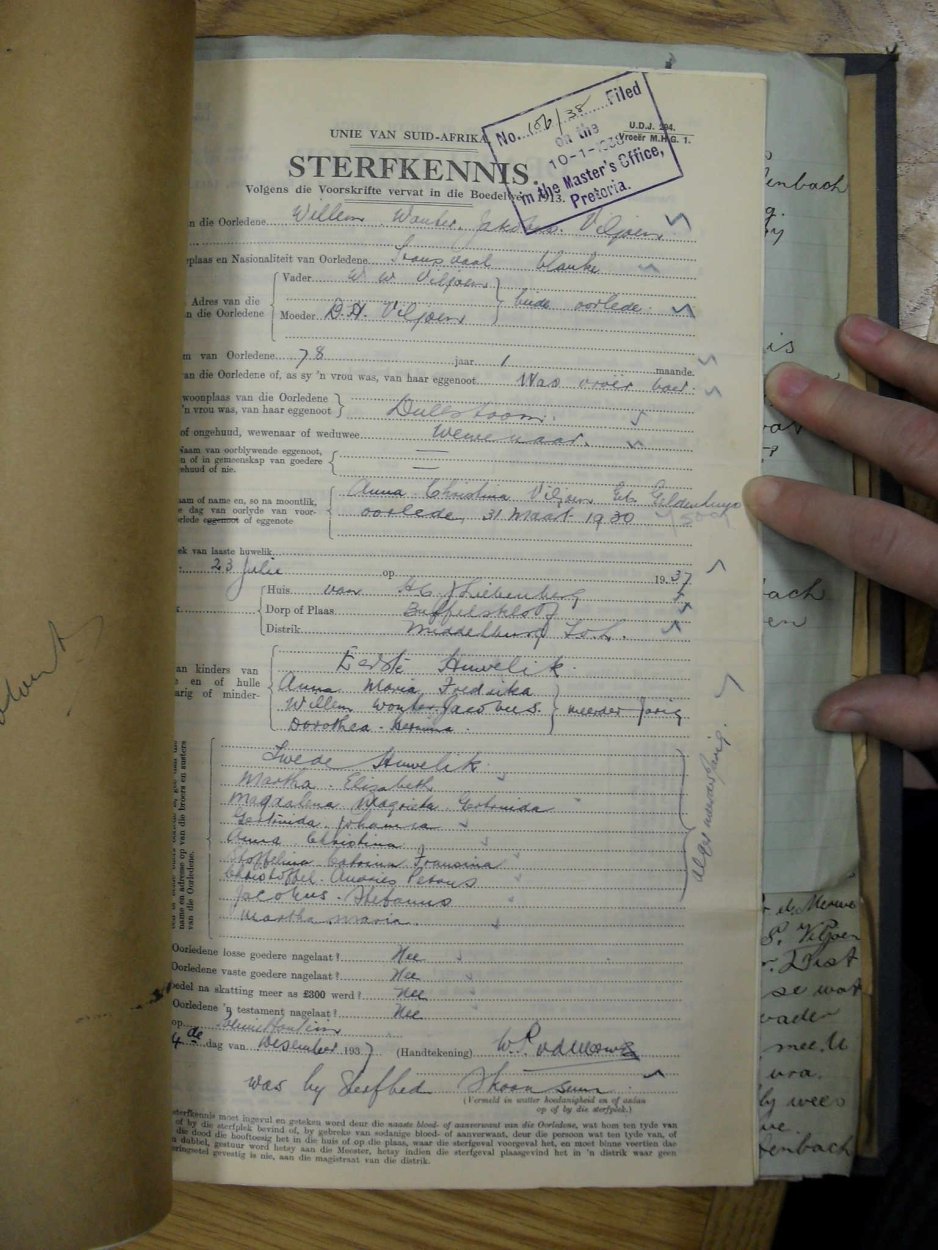 No. 106/38 Filed
on the
10-1-1938
in the Master's Office,
Pretoria.
U.D.J. 294.
Vroeër M.H.G. 1.
UNIE VAN SUID-AFRIKA
STERFKENNIS.
Volgens die Voorskrifte vervat in die Boedelwet, 1913.
n die Oorledene Willem Wouter Jakobus Viljoen
plaas en Nasionaliteit van Oorledene. Transvaal blanke
Vader W. W. Viljoen
Adres van die beide oorlede
n die Oorledene Moeder D. H. Viljoen
m van Oorledene 78 jaar 1 maande.
an die Oorledene of, as sy 'n vrou was, van haar eggenoot Was vroër boer
woonplaas van die Oorledene
'n vrou was, van haar eggenoot Dullstoom.
of ongehuud, wewenaar of weduwee Wewenaar.
Naam van oorblywende eggenoot,
n of in gemeenskap van goedere
gehuud of nie.
aam of name en, so na moontlik, Anna Christina Viljoen Geb Geldenhuys
e dag van oorlyde van voor- oorlede 31 Maart 1930
rlede eggenoot of eggenote
ek van laaste huwelik
23 Julie op 1937
Huis van H C J Liebenberg
Dorp of Plaas Buffelskloof
Distrik Middelburg
an kinders van Eerste Huwelik.
e en of hulle Anna Maria Fredrika
arig of minder- Willem Wouter Jacobus meerder jarig
Dorothea
Twede Huwelik
Martha Elizabeth
Magdalena Magrieta Gertruida
Gertruida Johanna
Anna Christina
Stoffelina Catrina Fransina
Christoffel Andries Petrus
Jacobus Stefanus
Martha Maria
name en adresse op van die broers en susters
van die Oorledene.
Oorledene losse goedere nagelaat? Nee
Oorledene vaste goedere nagelaat? Nee
oedel na skatting meer as £300 werd? Nee
Oorledene 'n testament nagelaat? Nee
op
4de dag van Desember 1937 (Handtekening) W.P. vd Merwe
was by sterfbed Skoon seun
(Vermeld in watter hoedanigheid en of aldan
op of by die sterfplek.)
sterfkennis moet ingevul en geteken word deur die naaste bloed- of aanverwant van die Oorledene, wat hom ten tyde van
of by die sterfplek bevind of, by gebreke van sodanige bloed- of aanverwant, deur die persoon wat ten tyde van, of
die dood die hooftoesig het in die huis of op die plaas, waar die sterfgeval voorgeval het, en moet binne veertien dae
n dubbel, gestuur word hetsy aan die Meester, hetsy indien die sterfgeval plaasgevind het in 'n distrik waar geen
eringsetel gevestig is nie, aan die magistraat van die distrik.
enbach
is
ach
en
r de Merwe
Viljoen
se wat
vader
mee. U
vra.
by wees
we.
enbach